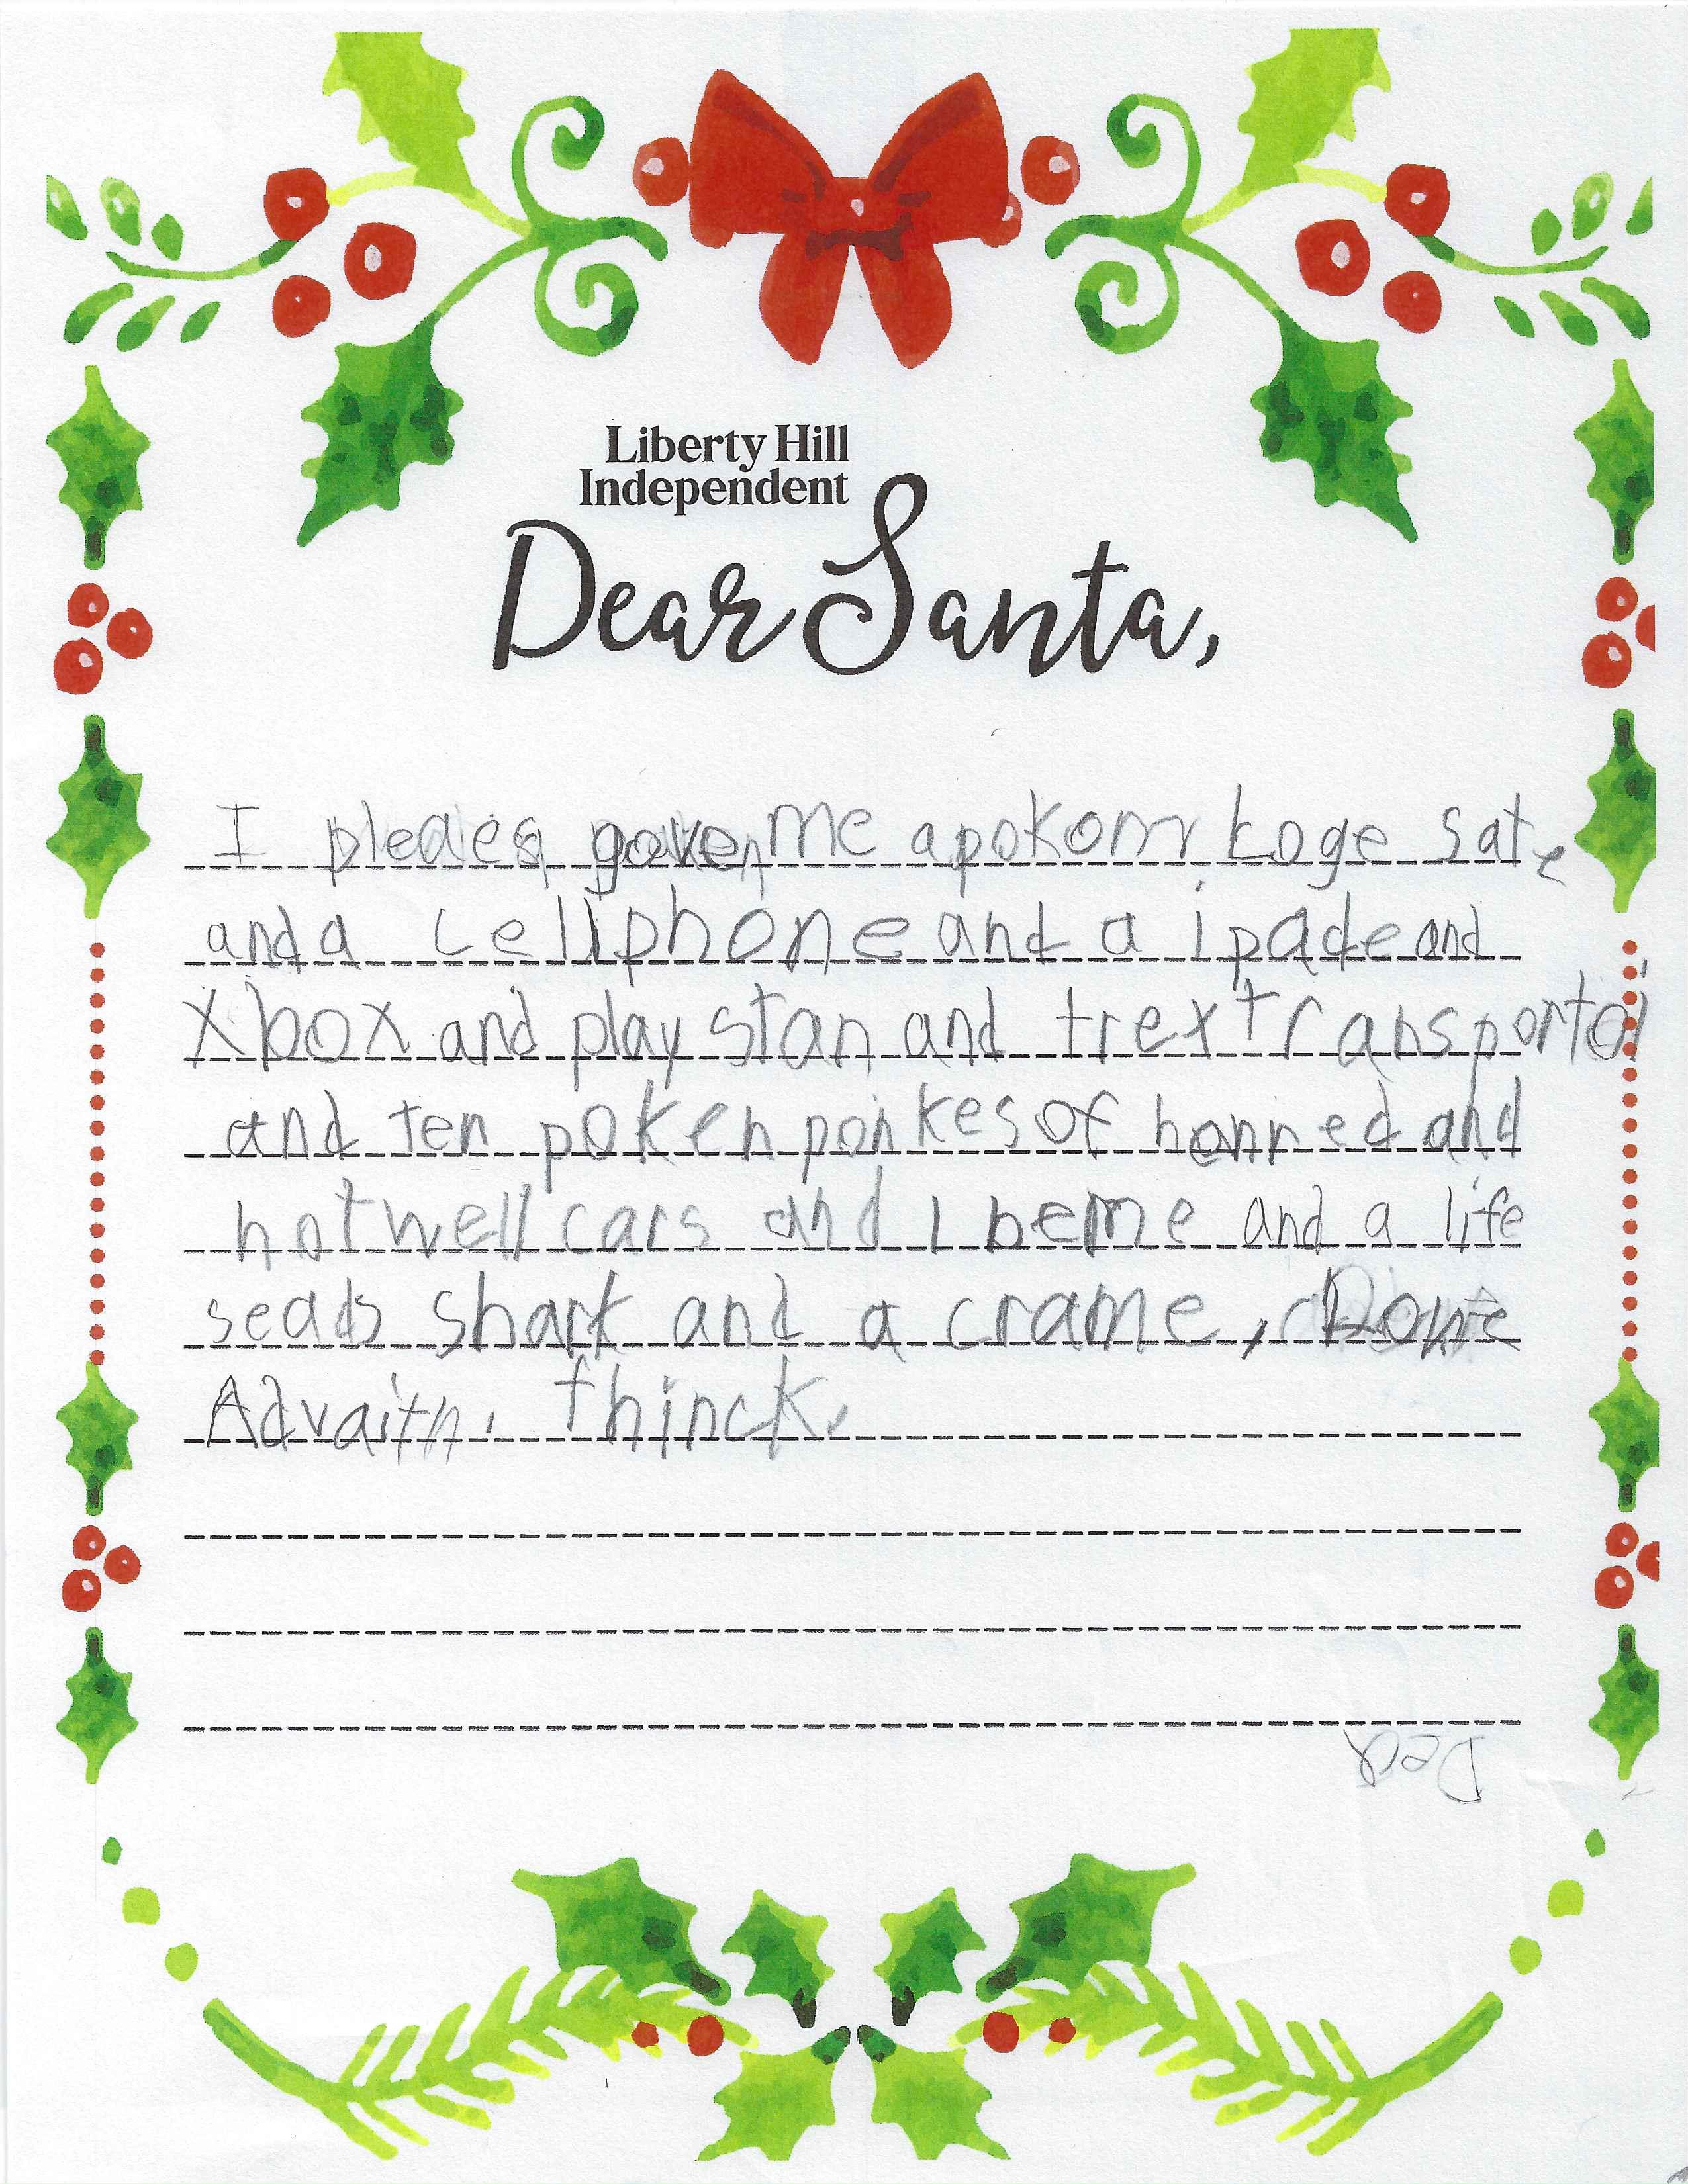 Liberty Hill
Independent
Dear Santa,
I pleaes me a pokom koge sate
and a cellphone and a ipade and
Xbox and play stan and trex transportor
and ten poken ponkes of honred and
hotwell cars and I beme and a life
seads shark and a crame,
Advaith. thinck.
Dea